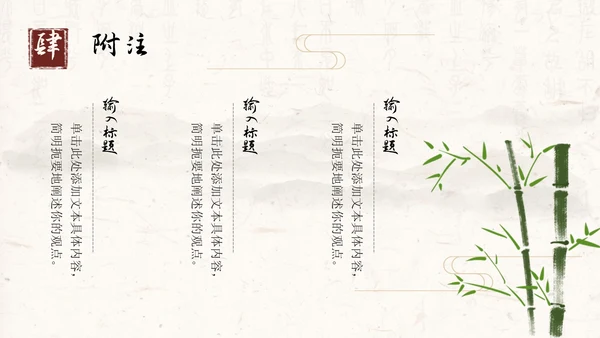 肆
附注
输入标题
单击此处添加文本具体内容，
简明扼要地阐述你的观点。
输入标题
单击此处添加文本具体内容，
简明扼要地阐述你的观点。
输入标题
单击此处添加文本具体内容，
简明扼要地阐述你的观点。